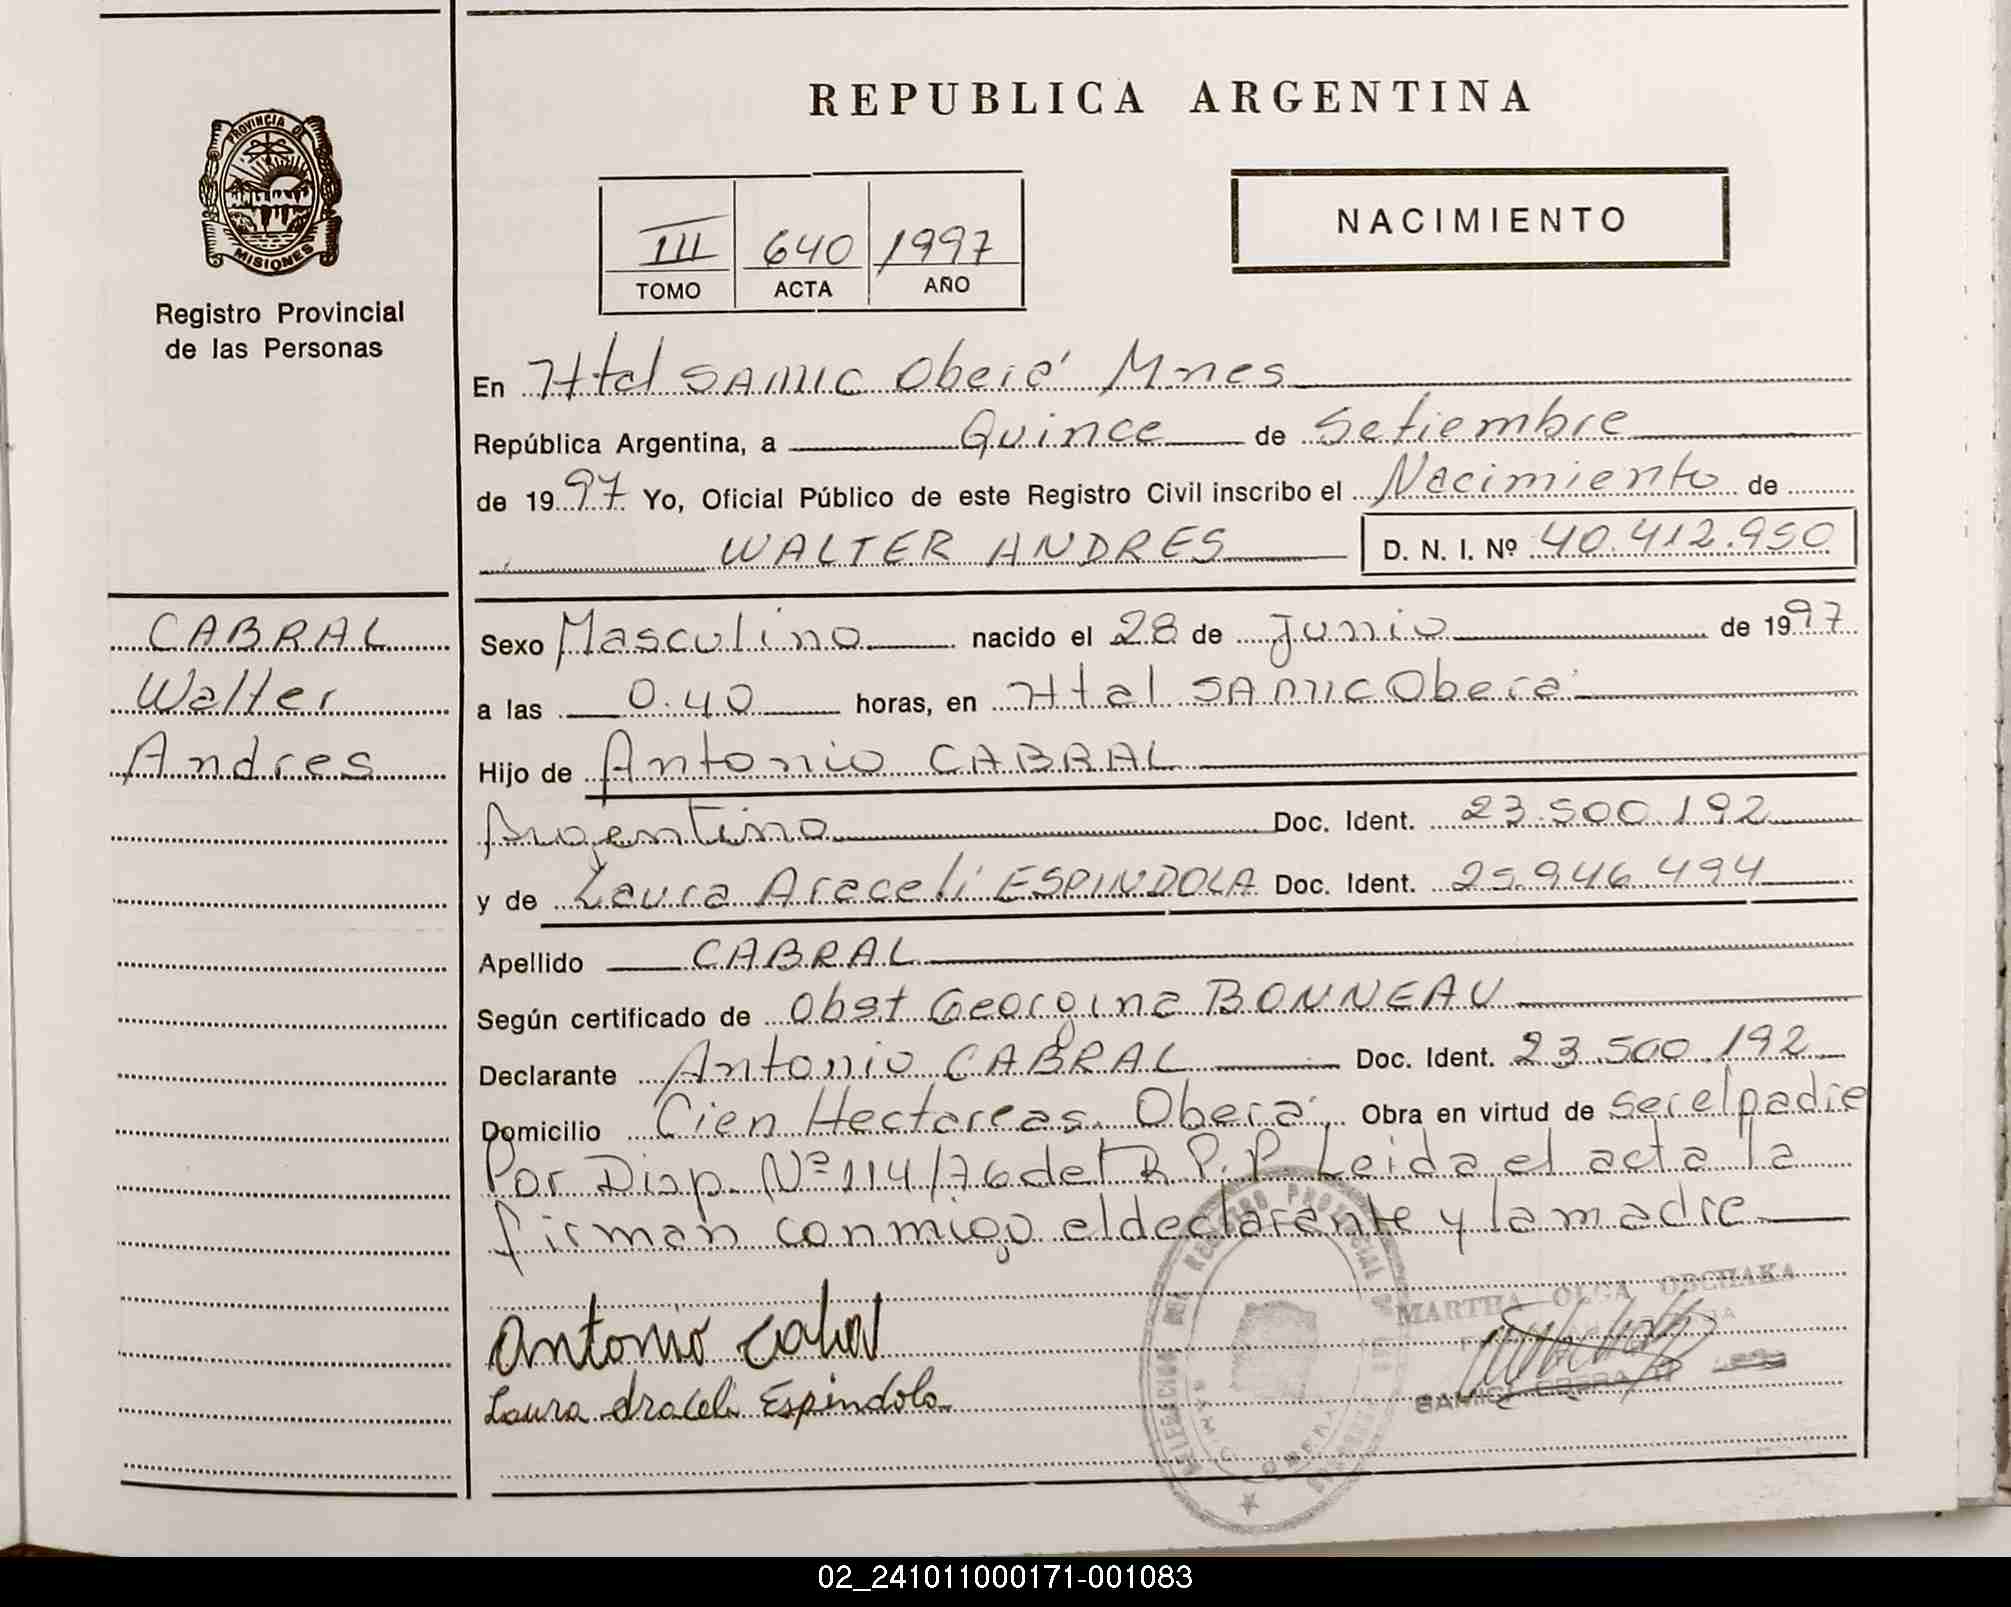 REPUBLICA ARGENTINA
PROVINCIA DE
MISIONES
Registro Provincial
de las Personas
III 640 1997
TOMO ACTA AÑO
NACIMIENTO
En Htal SAMIC Oberá Mnes
República Argentina, a Quince de Setiembre
de 1997 Yo, Oficial Público de este Registro Civil inscribo el Nacimiento de
WALTER ANDRES D. N. I. Nº 40.412.950
CABRAL
Walter
Andres
Sexo Masculino nacido el 28 de Junio de 1997
a las 0.40 horas, en Htal SAMIC Oberá
Hijo de Antonio CABRAL
Argentino Doc. Ident. 23.500.192
y de Laura Araceli ESPINDOLA Doc. Ident. 25.946.494
Apellido CABRAL
Según certificado de Obst Georgina BONNEAU
Declarante Antonio CABRAL Doc. Ident. 23.500.192
Domicilio Cien Hectareas. Oberá Obra en virtud de ser el padre
Por Disp. Nº 114/76 del R.P.P. Leida el acta la
firman conmigo el declarante y la madre
MARTHA OLGA OBCHAKA
Antonio Cabral
Laura Araceli Espindola
02_241011000171-001083